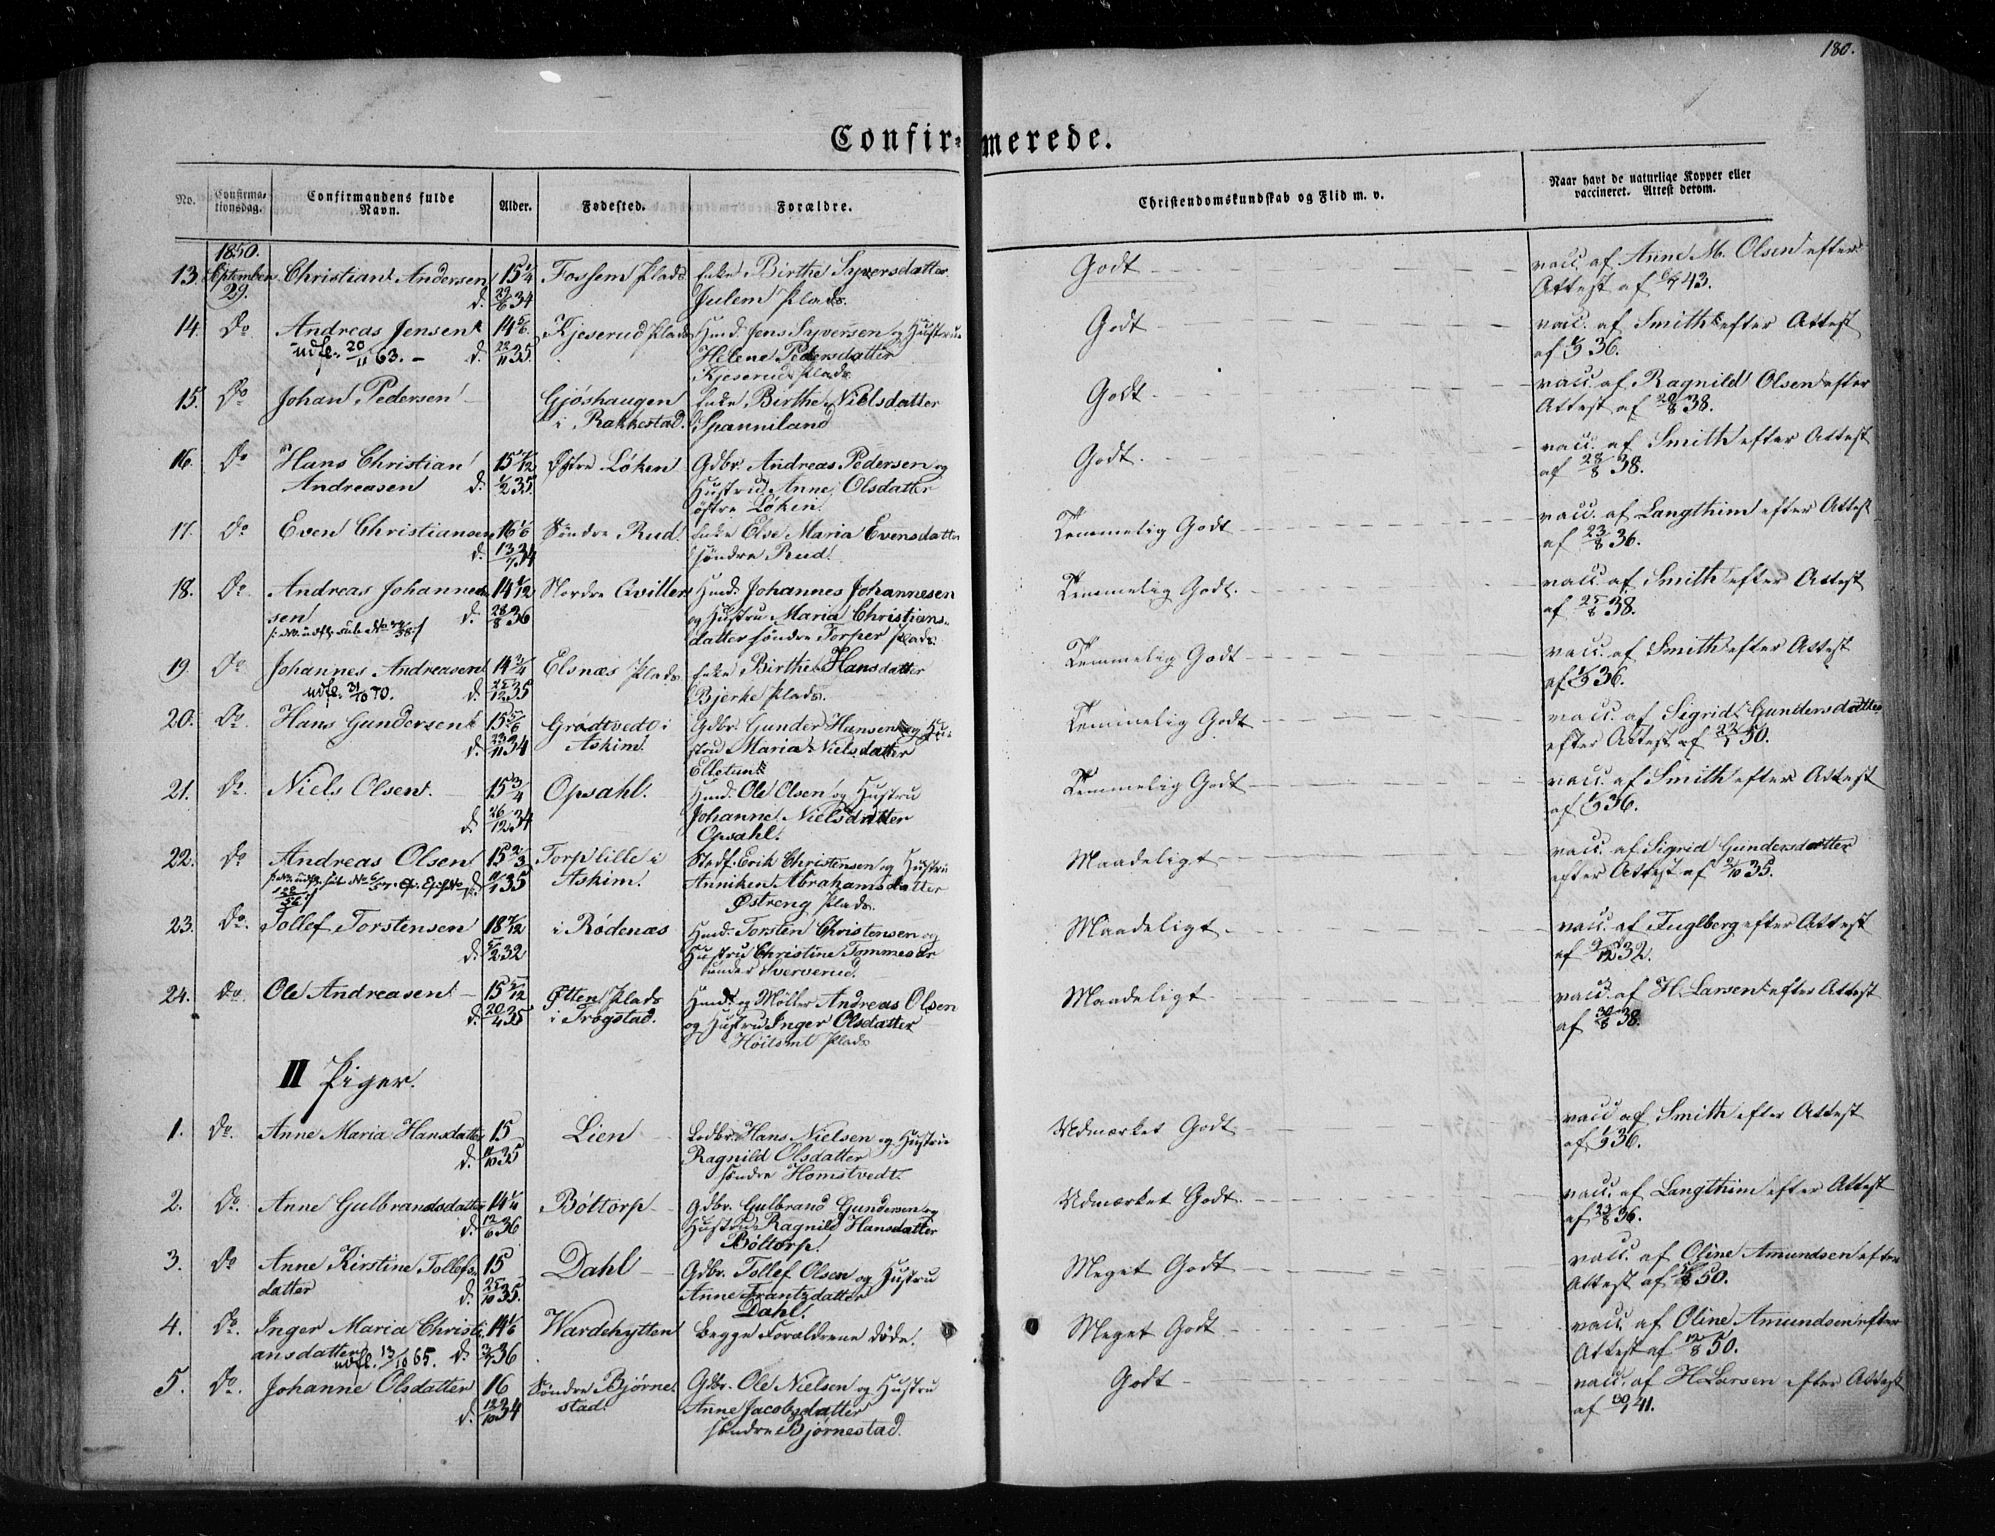 180.
Confirmerede.
No. Confirmationsdag. Confirmandens fulde Navn. Alder. Fødested. Forældre. Christendomskundskab og Flid m. v. Naar havt de naturlige Kopper eller vaccineret. Attest derom.
1850.
13. September Christian Andersen 15 1/4 Fossem Plads Enke Birthe Syversdatter Godt vacc. af Anne M. Olsen efter
29. d. 34 Julem Plads. Attest af 43.
14. Do Andreas Jensen 14 5/6 Kjeserud Plads Huusmd. Jens Syversen og Hustru Godt vacc. af Smith efter Attest
udfl. 20/11 63. d. 22/11 35. Helene Pedersdatter af 36.
Kjeserud Plads
15. Do Johan Pedersen Gjøshaugen Enke Birthe Nielsdatter Godt vacc. af Ragnild Olsen efter
i Rakkestad. Spanneland Attest af 20/8 38.
16. Do Hans Christian 15 7/12 Østre Løken Gdbr. Andreas Pedersen og Godt. vacc. af Smith efter Attest
Andreasen d. 35. Hustru Anne Olsdatter af 28/8 38.
østre Løken
17. Do Even Christiansen 16 1/6 Søndre Rud. Enke Else Maria Evensdatter Temmelig Godt vacc. af Langthim efter Attest
d. 34 søndre Rud. af 23/8 36.
18. Do Andreas Johanne- 14 1/12 Nordre Qviller Huusmd. Johannes Johannesen Temmelig Godt. vacc. af Smith efter Attest
sen d. 28/8 36 og Hustru Maria Christians- af 25/8 38.
datter søndre Torper Plads.
19. Do Johannes Andreasen 14 3/4 Elsnæs Plads Enke Birthe Hansdatter Temmelig Godt vacc. af Smith efter Attest
udfl. 70. d. 25/12 35 Bjerke Plads. af 36.
20. Do Hans Gundersen 15 5/6 Grødtvedt i Gdbr. Gunder Hansen og Hu- Temmelig Godt vacc. af Sigrid Gundersdatter
d. 23/11 34 Askim. stru Maria Nielsdatter efter Attest af 50.
Elletun
21. Do Niels Olsen. 15 3/4 Opsahl. Huusmd. Ole Olsen og Hustru Temmelig Godt vacc. af Smith efter Attest
d. 26/12 34 Johanne Nielsdatter af 36.
Opsahl.
22. Do Andreas Olsen 15 2/3 Torp lille i Stedf. Erik Christensen og Hustru Maadeligt vacc. af Sigrid Gundersdatter
d. 35 Askim. Anniken Abrahamsdatter efter Attest af 35.
Østreng Plads.
23. Do. Tollef Torstensen 18 7/12 i Rødenæs Huusmd. Torsten Christensen og Maadeligt vacc. af Fuglberg efter Attest
d. 32 Hustru Christine Tommesdr af 32.
under Sververud.
24. Do. Ole Andreasen 15 5/12 Øtten Plads Huusmd. og Møller Andreas Olsen Maadeligt vacc. af H. Larsen efter Attest
d. 20/4 35 i Trøgstad. og Hustru Inger Olsdatter af 30/8 38.
Plads
II Piger.
1. Do. Anne Maria Hansdatter 15 Lien Ledbr. Hans Nielsen og Hustru Udmærket Godt vacc af Smith efter Attest
d. 35 Ragnild Olsdatter af 36.
søndre Homstvedt.
2. Do. Anne Gulbrandsdatter 14 1/4 Bøltorp Gdbr. Gulbrand Gundersen og Udmærket Godt. vacc. af Langthim efter Attest
d. 12/6 36 Hustru Ragnild Hansdatter af 23/8 36.
Bøltorp.
3. Do Anne Kirstine Tollefs- 15 Dahl Gdbr. Tollef Olsen og Hustru Meget Godt vacc. af Oline Amundsen efter
datter d. 25/10 35. Anne Frantzdatter Attest af 50.
Dahl.
4. Do. Inger Maria Christi- 14 1/6 Wardehytten Begge Forældrene døde. Meget Godt vacc. af Oline Amundsen efter
ansdatter udfl. 13/10 65. d. 36 Attest af 12/8 50.
5. Do. Johanne Olsdatter 16 Søndre Bjørne- Gdbr. Ole Nielsen og Hustru Godt vacc. af H. Larsen efter Attest
d. 12/10 34 stad. Anne Jacobsdatter af 41.
søndre Bjørnestad.